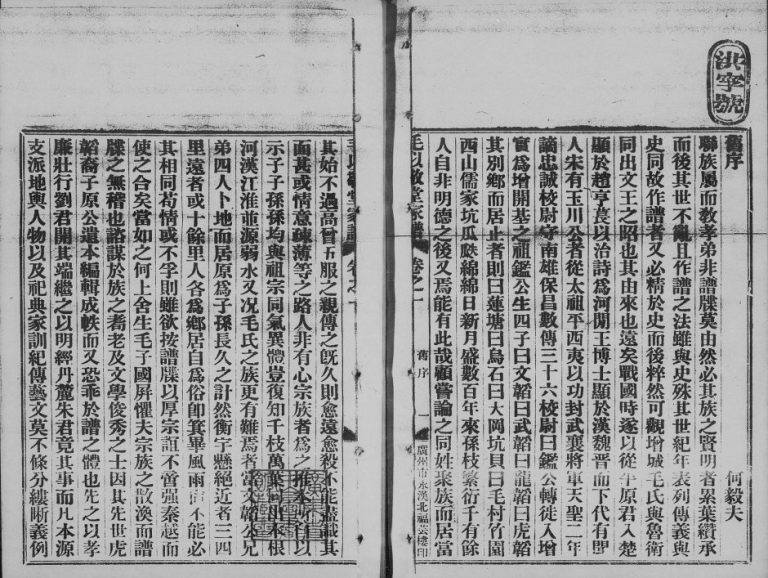 洪字號
舊序
何毅夫
聯族屬而敦孝弟非譜牒莫由然必其族之賢明者累葉纘承
而後其世不亂且作譜之法雖與史殊其世紀年表列傳義與
史同故作譜者又必精於史而後粹然可觀增城毛氏與魯衛
同出文王之昭也其由來也遠矣戰國時遂以從平原君入楚
顯於趙亨萇以治詩爲河間王博士顯於漢魏晉而下代有聞
人宋有玉川公者從太祖平西夷以功封武襄將軍天聖二年
謫忠誠校尉守南雄保昌數傳三十六校尉曰鑑公轉徙入增
實爲增開基之祖鑑公生四子曰文韜曰武韜曰龍韜曰虎韜
其別鄉而居止者則曰蓮塘曰烏石曰大岡坑貝曰毛村竹園
西山儒家坑瓜瓞綿綿日新月盛數百年來孫枝繁衍千有餘
人自非明德之後又焉能有此哉顧嘗論之同姓聚族而居當
毛以敬堂家譜
卷之一
舊序
一
廣州市永漢北福芸樓印
其始不過高曾五服之親傳之旣久則愈遠愈殺不能盡識其
面甚或情意疎薄等之路人非有心宗族者爲之推本所自以
示子子孫孫均與祖宗同氣異體豈復知千枝萬葉同此木根
河漢江淮並源弱水又况毛氏之族更有難焉者當文韜公兄
弟四人卜地而居原爲子孫長久之計然衡宇懸絕近者三四
里遠者或十餘里人各爲鄉居自爲俗卽箕畢風雨不能必
其相同苟情或不孚則雖欲按譜牒以厚宗誼不啻強秦越而
使之合矣當如之何上舍生毛子國屏懼夫宗族之散渙而譜
牒之無稽也諮謀於族之耆老及文學俊秀之士因其先世虎
韜裔子原公遺本編輯成帙而又恐乖於譜之體也先之以孝
廉壯行劉君開其端繼之以明經丹麓朱君竟其事而凡本源
支派地輿人物以及祀典家訓紀傳藝文莫不條分縷晰義例